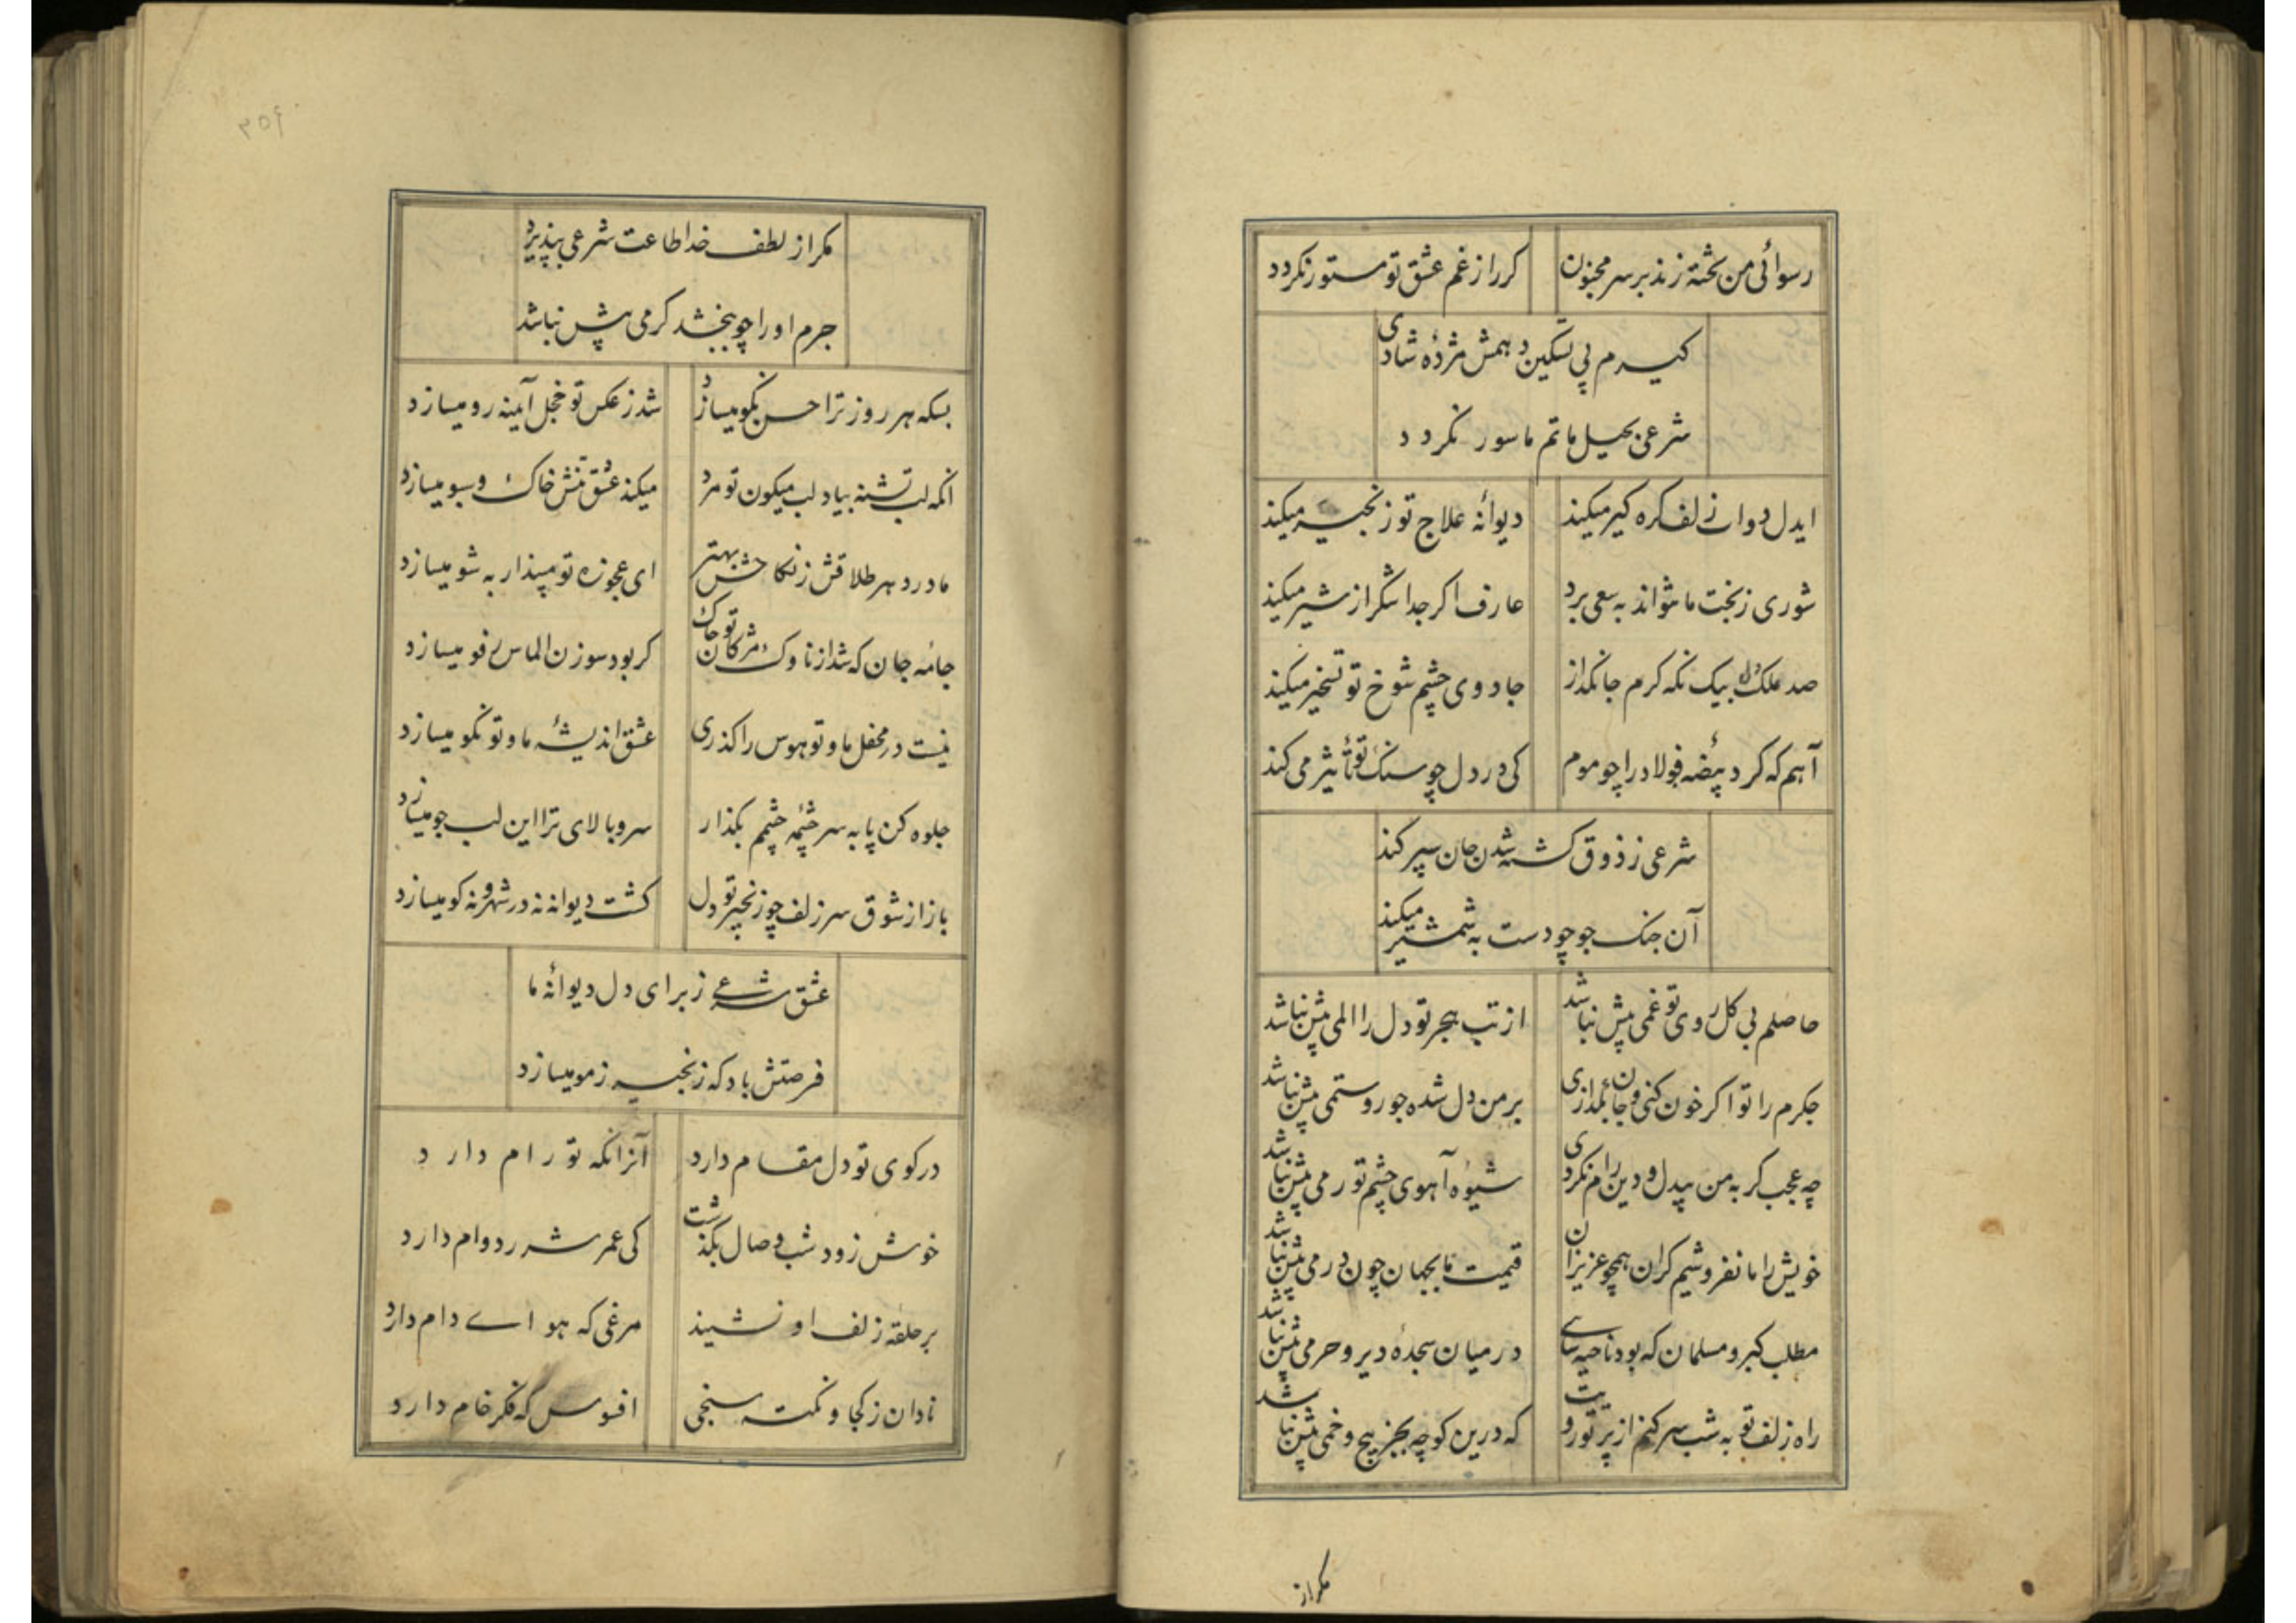 رسوائی من تخته زند بر سر مجنون کر راز غم عشق تو مستور نکردد
کیرم پی تسکین دهمش مژدهٔ شادی
شرعی بحیل ماتم ما سور نکردد
ایدل دوا ز زلف کره کیر میکند دیوانه علاج تو زنجیر میکند
شوری ز بخت ما نتواند به سعی برد عارف اکر جدا شکر از شیر میکند
صد ملک دل بیک نکه کرم جانکداز جادوی چشم شوخ تو تسخیر میکند
آهم که کرد بیضهٔ فولاد را چو موم کی در دل چو سنک تو تأثیر می کند
شرعی ز ذوق کشته شدن جان سپر کند
آن جنک جو چو دست به شمشیر میکند
حاصلم بی کل روی تو غمی بیش نباشد از تب هجر تو دل را المی بیش نباشد
جکرم را تو اکر خون کنی و جان بکدازی بر من دل شده جور و ستمی بیش نباشد
چه عجب کر به من بیدل و دین رام نکردی شیوهٔ آهوی چشم تو رمی بیش نباشد
خویش را ما نفروشیم کران همچو عزیزان قیمت ما بجهان چون درمی بیش نباشد
مطلب کبر و مسلمان که بود ناحیه سای در میان سجدهٔ دیر و حرمی بیش نباشد
راه زلف تو به شب سر کنم از پرتو رویت که درین کوچه بجز پیچ و خمی بیش نباشد
مکر از
۳۵۶
مکر از لطف خدا طاعت شرعی بپذیرد
جرم او را چو ببخشد کرمی بیش نباشد
بسکه هر روز ترا حسن نکو میسازد شد ز عکس تو خجل آینه رو میسازد
انکه لب تشنه بیاد لب میکون تو مرد میکند عشق تنش خاک و سبو میسازد
مادر دهر طلاقش ز نکاحش بهتر ای عجوزه تو مپندار به شو میسازد
جامهٔ جان که شد از ناوک مژکان تو چاک کر بود سوزن الماس رفو میسازد
نیست در محفل ما و تو هوس را کذری عشق اندیشهٔ ما و تو نکو میسازد
جلوه کن پا به سر چشمهٔ چشمم بکذار سرو بالای ترا این لب جو میسازد
باز از شوق سر زلف چو زنجیر تو دل کشت دیوانه نه در شهر و نه کو میسازد
عشق شرعی ز برای دل دیوانهٔ ما
فرصتش باد که زنجیر ز مو میسازد
در کوی تو دل مقام دارد آنرا نکه تو رام دارد
خوش زود شب وصال بکذشت کی عمر شرر دوام دارد
بر حلقه زلف او نشیند مرغی که هوای دام دارد
نادان ز کجا و نکته سنجی افسوس که فکر خام دارد